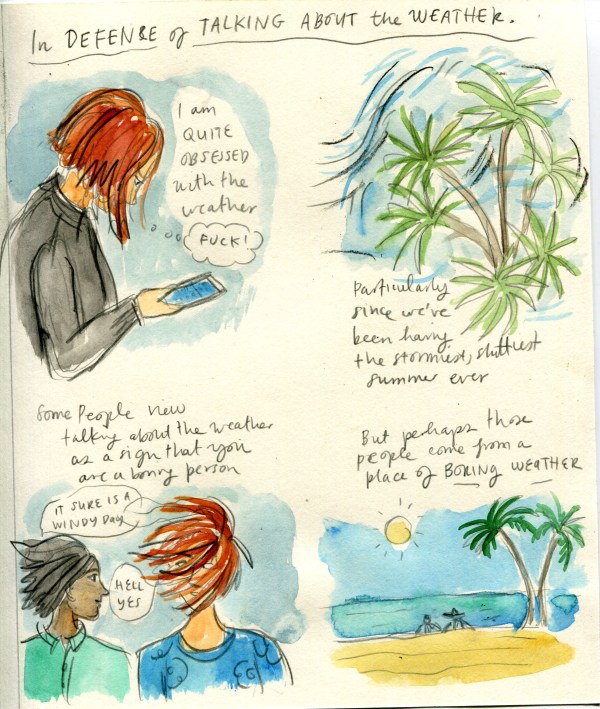 In DEFENSE of TALKING ABOUT the WEATHER.
I am
QUITE
OBSESSED
with the
weather
FUCK!
Particularly
since we've
been having
the stormiest, shittiest
summer ever
Some People view
talking about the weather
as a sign that you
are a boring person
IT SURE IS A
WINDY DAY
HELL
YES
But perhaps those
people come from a
place of BORING WEATHER